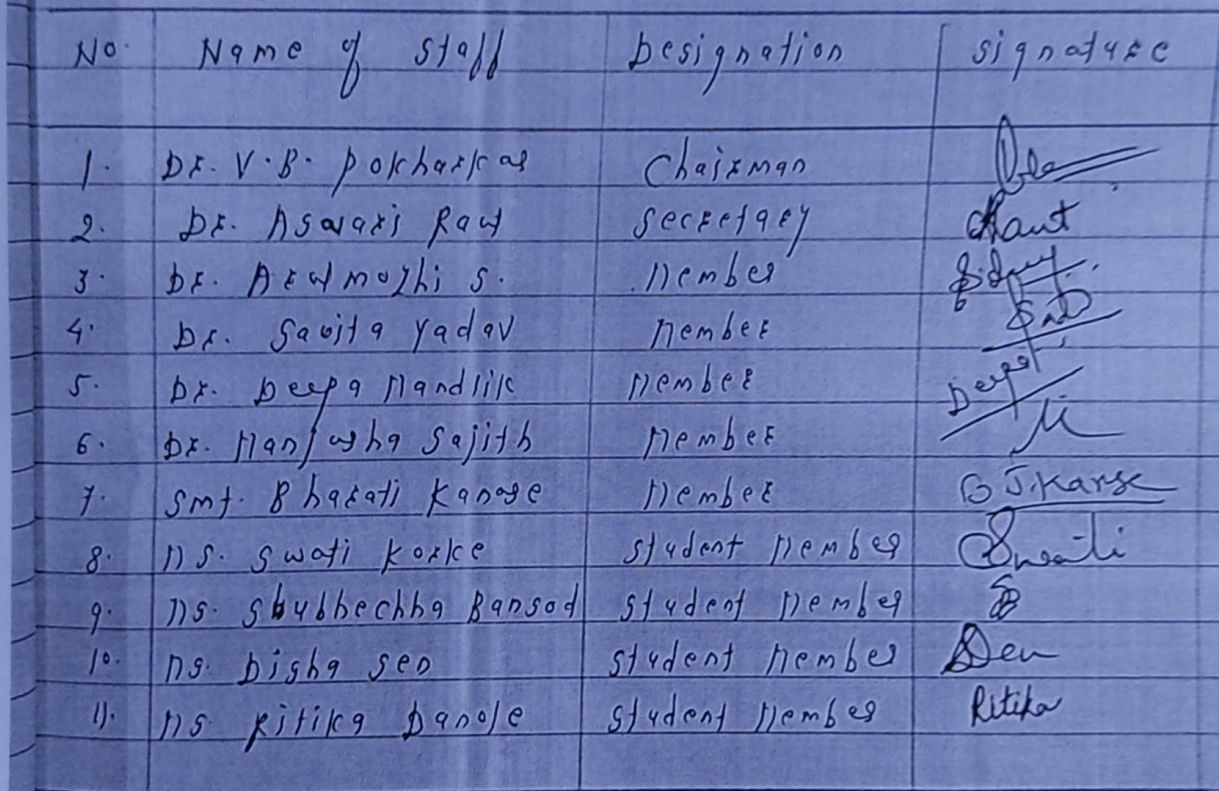 No. Name of Staff Designation Signature
1. Dr. V. B. Pokharkar Chairman
2. Dr. Asavari Raut Secretary Raut
3. Dr. Arulmozhi S. Member
4. Dr. Savita Yadav Member
5. Dr. Deepa Mandlik Member Deepa
6. Dr. Manjusha Sajith Member
7. Smt. Bharati Karase Member
8. Ms. Swati Korke Student Member Swati
9. Ms. Shubhechha Bansod Student Member
10. Ms. Disha Sen Student Member Sen
11. Ms Ritika Danole Student Member Ritika